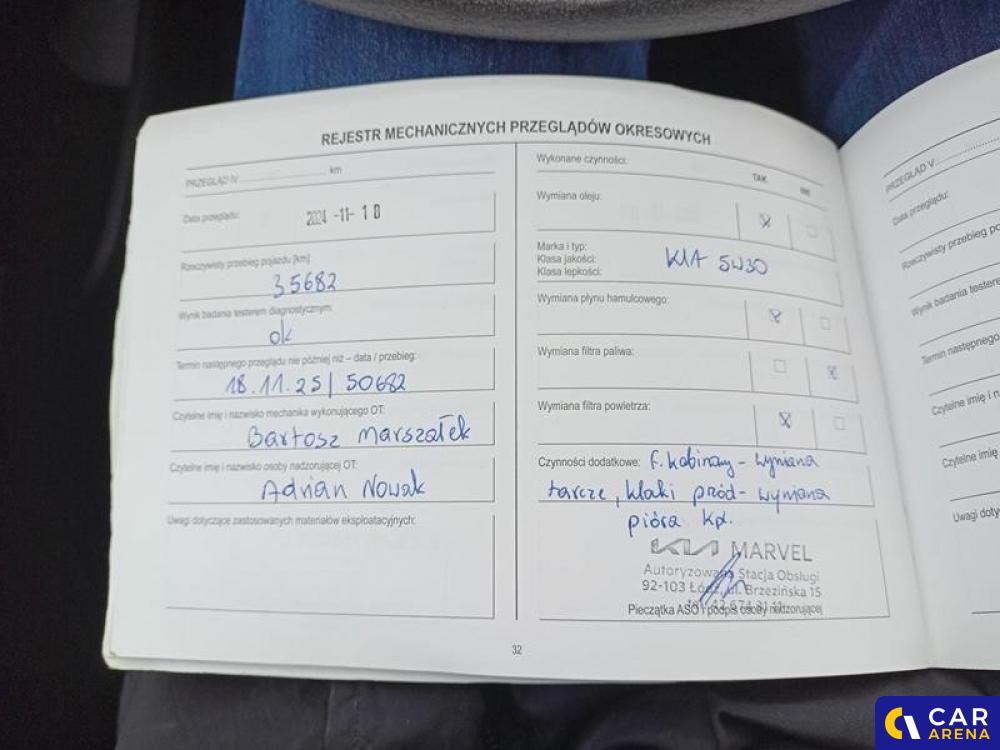 REJESTR MECHANICZNYCH PRZEGLĄDÓW OKRESOWYCH
PRZEGLĄD IV ........................ km
Data przeglądu:
2024 -11- 18
Rzeczywisty przebieg pojazdu [km]:
35682
Wynik badania testerem diagnostycznym:
ok
Termin następnego przeglądu nie później niż – data / przebieg:
18.11.25 | 50682
Czytelne imię i nazwisko mechanika wykonującego OT:
Bartosz Marszałek
Czytelne imię i nazwisko osoby nadzorującej OT:
Adrian Nowak
Uwagi dotyczące zastosowanych materiałów eksploatacyjnych:
Wykonane czynności:
TAK NIE
Wymiana oleju:
Marka i typ:
Klasa jakości:
Klasa lepkości:
KIA 5W30
Wymiana płynu hamulcowego:
Wymiana filtra paliwa:
Wymiana filtra powietrza:
Czynności dodatkowe: f. kabinowy - wymiana
tarcze, klocki przód - wymiana
pióra kpl.
KIA MARVEL
Autoryzowana Stacja Obsługi
92-103 Łódź, ul. Brzezińska 15
Pieczątka ASO i podpis osoby nadzorującej
32
PRZEGLĄD V
Data przeglądu:
Rzeczywisty przebieg po
Wynik badania testere
Termin następnego
Czytelne imię i n
Czytelne imię
Uwagi doty
CAR
ARENA